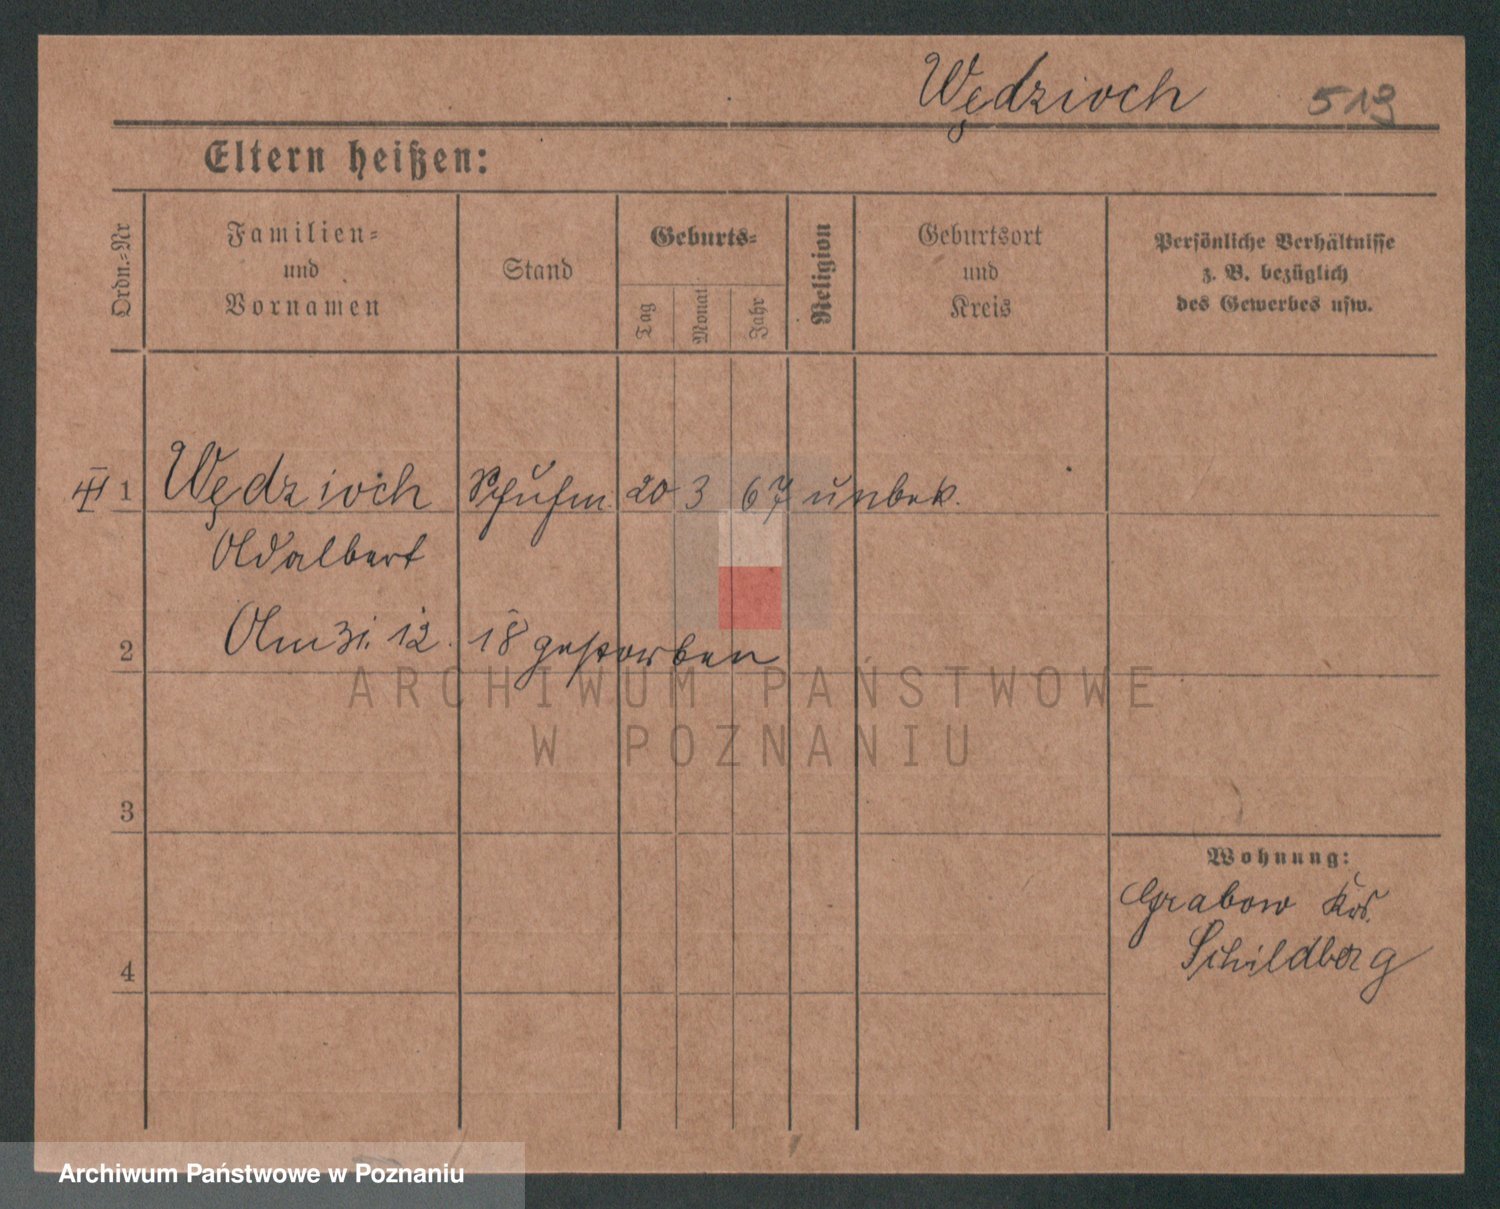 Wędzioch 519
Eltern heißen:
Ordn.-Nr
Familien-
und
Vornamen
Stand
Geburts-
Tag
Monat
Jahr
Religion
Geburtsort
und
Kreis
Persönliche Verhältnisse
z. B. bezüglich
des Gewerbes usw.
1 Wędzioch Schuhm. 20 3 67 unbek.
Adalbert
2 Am 31. 12. 18 gestorben
3
4
Wohnung:
Grabow Krs.
Schildberg
ARCHIWUM PAŃSTWOWE
W POZNANIU
Archiwum Państwowe w Poznaniu